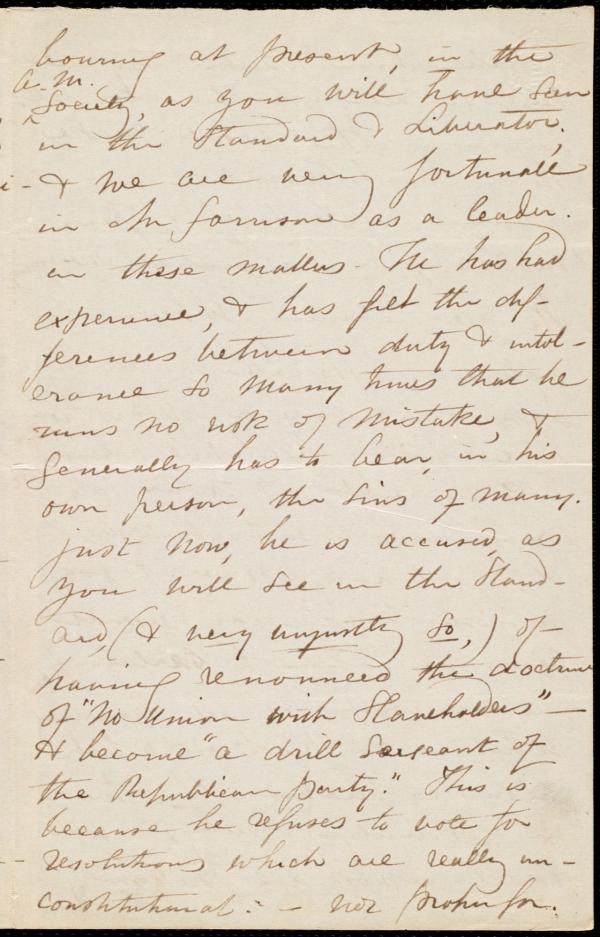 bouring at present, in the
A. M.
Society, as you will have seen
in the Standard & Liberator,
& we are very fortunate
in Mr Garrison as a leader.
in these matters. He has had
experience, & has felt the dif-
ferences between duty & intol-
erance so many times that he
runs no risk of mistake, &
generally has to bear, in his
own person, the sins of many.
just now, he is accused, as
you will see in the Stand-
ard, (& very unjustly so,) of
having renounced the doctrine
of "No Union with Slaveholders" —
& become "a drill Sergeant of
the Republican party." This is
because he refuses to vote for
resolutions which are really un-
constitutional: — nor